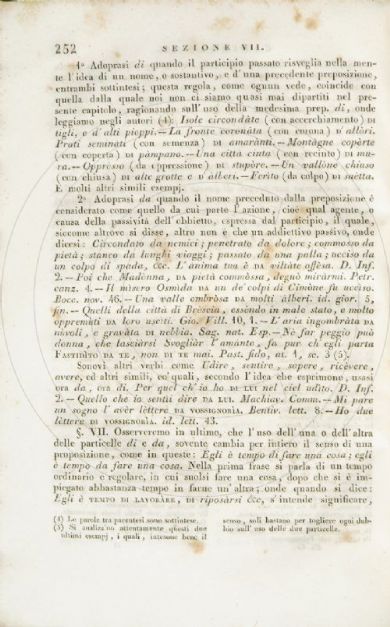 252 SEZIONE VII.
1º Adoprasi di quando il participio passato risveglia nella men-
te l'idea di un nome, o sostantivo, e d'una precedente preposizione,
entrambi sottintesi; questa regola, come ognun vede, coincide con
quella dalla quale noi non ci siamo quasi mai dipartiti nel pre-
sente capitolo, ragionando sull'uso della medesima prep. di, onde
leggiamo negli autori (4): Isole circondàte (con accerchiamento) di
tigli, e d'alti pioppi.—La fronte coronàta (con corona) d'allòri.
Prati seminati (con semenza) di amarànti.—Montàgne copèrte
(con coperta) di pàmpano.—Una città cinta (con recinto) di mu-
ra.—Oppresso (da oppressione) di stupòre.—Un vallòne chiuso
(con chiusa) di alte grotte e d'àlberi.—Ferìto (da colpo) di saetta.
E molti altri simili esempj.
2º Adoprasi da quando il nome preceduto dalla preposizione è
considerato come quello da cui parte l'azione, cioè qual agente, o
causa della passività dell'obbietto, espressa dal participio, il quale,
siccome altrove si disse, altro non è che un addiettivo passivo, onde
dicesi: Circondato da nemici; penetrato da dolore; commosso da
pietà; stanco da lunghi viaggi; passato da una palla; ucciso da
un colpo di spada, &c. L'anima tua è da viltàte offesa. D. Inf.
2.—Poi che Madònna, DA pietà commòssa, degnò miràrmi. Petr.
canz. 4.—Il misero Osmìda DA un de' colpi di Cimòne fu ucciso.
Bocc. nov. 46.—Una valle ombròsa DA molti àlberi. id. gior. 5,
fin.—Quelli della città di Brèscia, essèndo in male stato, e molto
oppremùti DA loro usciti. Gio. Vill. 10, 1.—L'aria ingombràta DA
nùvoli, e gravàta DI nebbia. Sag. nat. Esp.—Nè far peggio può
donna, che lasciàrsi Svogliàr l'amànte, fa pur ch'egli parta
FASTIDÌTO DA TE, NON DI TE mai. Past. fido, at. 1, sc. 3 (5).
Sonovi altri verbi come Udìre, sentìre, sapère, ricèvere,
avère, ed altri simili, co' quali, secondo l'idea che esprimono, usasi
ora da, ora di. Per quel ch'io ho DI LUI nel ciel udìto. D. Inf.
2.—Quello che io sentii dire DA LUI. Machiav. Comm.—Mi pare
un sogno l'avèr lèttere DA VOSSIGNORIA. Bentiv. lett. 8.—Ho due
lèttere DI VOSSIGNORIA. id. lett. 43.
§. VII. Osserveremo in ultimo, che l'uso dell'una o dell'altra
delle particelle di e da, sovente cambia per intiero il senso di una
proposizione, come in queste: Egli è tempo di fare una cosa; egli
è tempo da fare una cosa. Nella prima frase si parla di un tempo
ordinario e regolare, in cui suolsi fare una cosa, dopo che si è im-
piegato abbastanza tempo in farne un'altra; onde quando si dice:
Egli è TEMPO DI LAVORÀRE, DI riposàrsi &c, s'intende significare,
(4) Le parole tra parentesi sono sottintese.
(5) Si analizzino attentamente questi due
ultimi esempj, i quali, intesone bene il
senso, soli bastano per togliere ogni dub-
bio sull'uso delle due particelle.